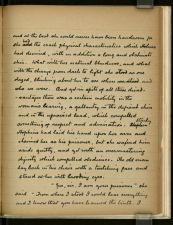 and at the best she could never have been handsome for
she had the exact physical characteristics which Holmes
had divined, with in addition a long and obstinate
chin. What with her natural blindness, and what
with the change from dark to light she stood as one
dazed, blinking about her to see where we stood and
who we were. And yet in spite of all these disad-
vantages there was a certain nobility in the
woman's bearing, a gallantry in the defiant chin
and in the upraised head, which compelled
something of respect and admiration. Stanley
Hopkins had laid his hand upon her arm and
claimed her as his prisoner, but she waved him
aside gently, and yet with an overmastering
dignity which compelled obedience. The old man
lay back in his chair with a twitching face and
stared at her with brooding eyes.
"Yes, sir, I am your prisoner" she
said. "From where I stood I could hear everything
and I know that you have learned the truth. I